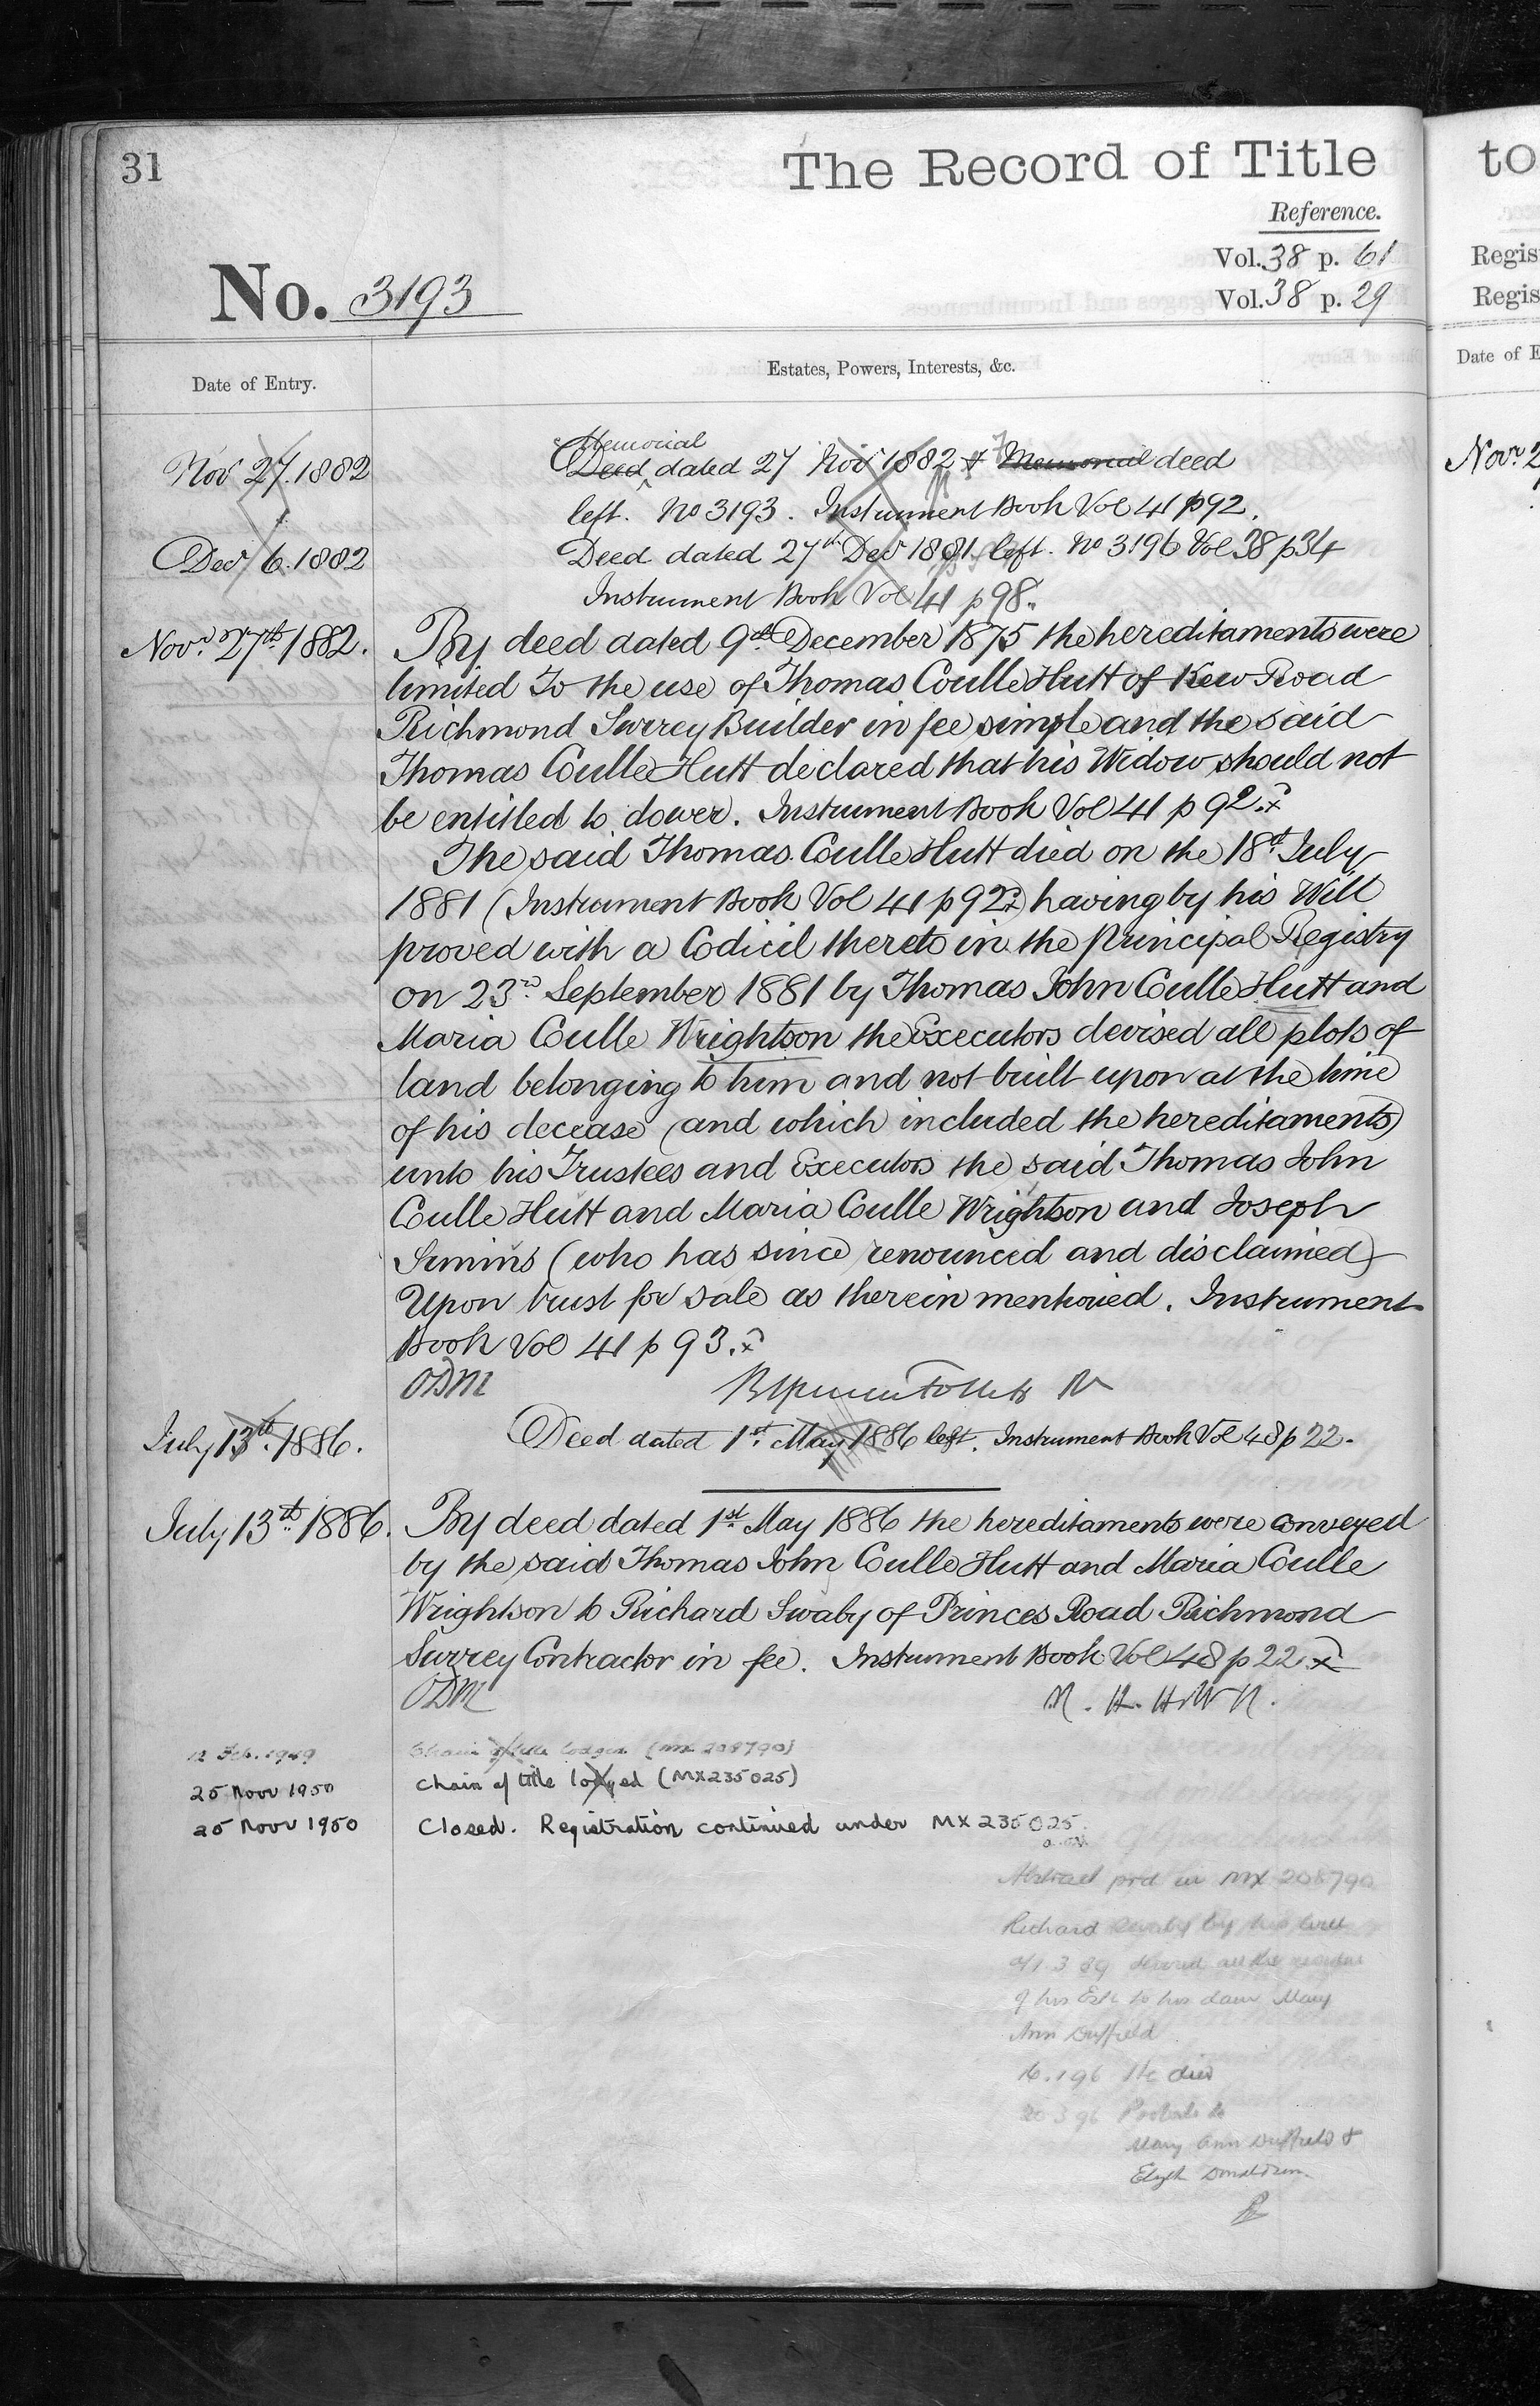 31
The Record of Title
Reference.
Vol. 38 p. 61
Vol. 38 p. 29
No. 3193
Date of Entry.
Estates, Powers, Interests, &c.
Memorial
Nov 27. 1882 Deed dated 27 Nov 1882 & Memorial deed
left. No 3193. Instrument Book Vol 41 p 92.
Decr 6. 1882 Deed dated 27th Decr 1881 left. No 3196 Vol 38 p 34
Instrument Book Vol 41 p 98.
Novr 27th 1882. By deed dated 9th December 1875 the hereditaments were
limited To the use of Thomas Coulle Hutt of Kew Road
Richmond Surrey Builder in fee simple and the said
Thomas Coulle Hutt declared that his Widow should not
be entitled to dower. Instrument Book Vol 41 p 92.
The said Thomas Coulle Hutt died on the 18th July
1881 (Instrument Book Vol 41 p 92) having by his Will
proved with a Codicil thereto in the Principal Registry
on 23rd September 1881 by Thomas John Coulle Hutt and
Maria Coulle Wrightson the Executors devised all plots of
land belonging to him and not built upon at the time
of his decease (and which included the hereditaments)
unto his Trustees and Executors the said Thomas John
Coulle Hutt and Maria Coulle Wrightson and Joseph
Simins (who has since renounced and disclaimed)
Upon trust for sale as therein mentioned. Instrument
Book Vol 41 p 93.
ODM
July 13th 1886. Deed dated 1st May 1886 left. Instrument Book Vol 48 p 22.
July 13th 1886. By deed dated 1st May 1886 the hereditaments were conveyed
by the said Thomas John Coulle Hutt and Maria Coulle
Wrightson to Richard Swaby of Princes Road Richmond
Surrey Contractor in fee. Instrument Book Vol 48 p 22
ODM
12 Feb. 1949 Chain of title lodged (MX 208790)
25 Novr 1950 Chain of title lodged (MX235025)
25 Novr 1950 Closed. Registration continued under MX 235025.
Abstract prd in MX 208790
Richard Swaby by his will
3 89 devised all the residue
of his Este to his daur Mary
Ann Duffield
16.1 96 He died
20 3 96 Probate to
Mary Ann Duffield &
Elizth Donaldson
to
Regis
Regis
Date of E
Novr 2